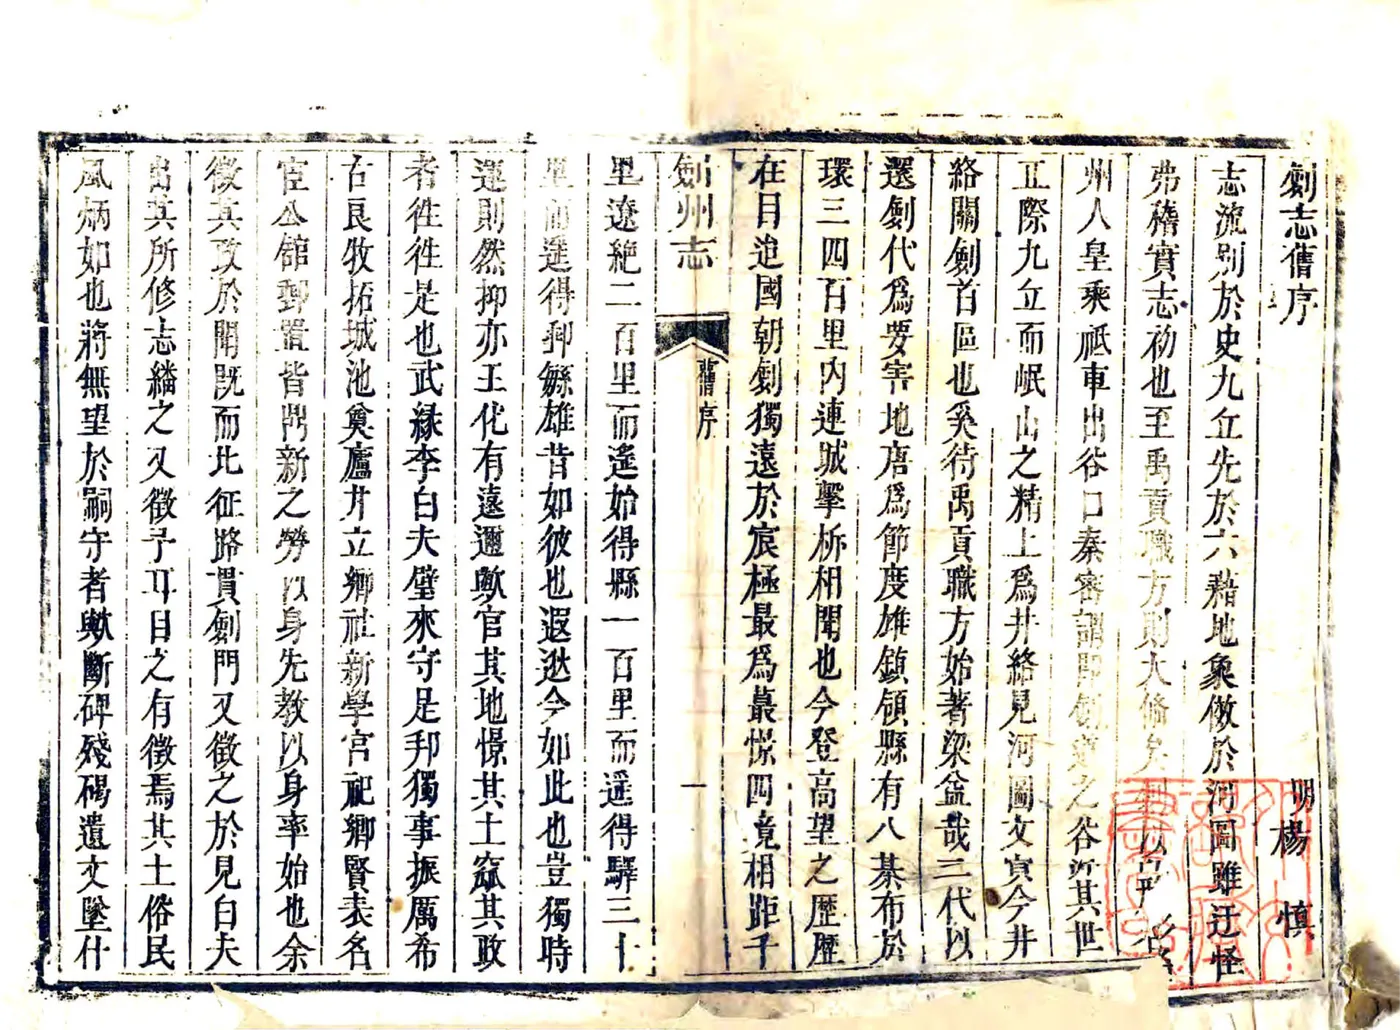 劍志舊序
明楊慎
志流别於史九丘先於六籍地象倣於河圖雖迂怪
弗稽實志初也至禹貢職方則大脩矣
州人皇乘祗車出谷口秦宓謂即劍道之谷於其世
丘際九丘而岷山之精上爲井絡見河圖文實今井
絡關劍首區也奚待禹貢職方始著梁益哉三代以
還劍代爲要害地唐爲節度雄鎮領縣有八棊布於
環三四百里内連城擊柝相聞也今登高望之歷歷
在目迨國朝劍獨遠於宸極最爲蕞憬四竟相距千
劍州志
舊序
一
里遼絶二百里而遙始得縣一百里而遥得驛三十
里而遥得郵繇雄昔如彼也遐逖今如此也豈獨時
運則然抑亦王化有遠邇歟官其地憬其土窳其政
者徃徃是也武緣李白夫璧來守是邦獨事振厲希
古良牧拓城池奠廬井立鄉社新學宫祀鄉賢表名
宦公舘郵置皆鬥新之勞以身先教以身率始也余
徵其政於聞既而北征路貫劍門又徵之於見白夫
出其所修志繙之又徵予耳目之有徵焉其土俗民
風炳如也將無望於嗣守者歟斷碑殘碣遺文墜什